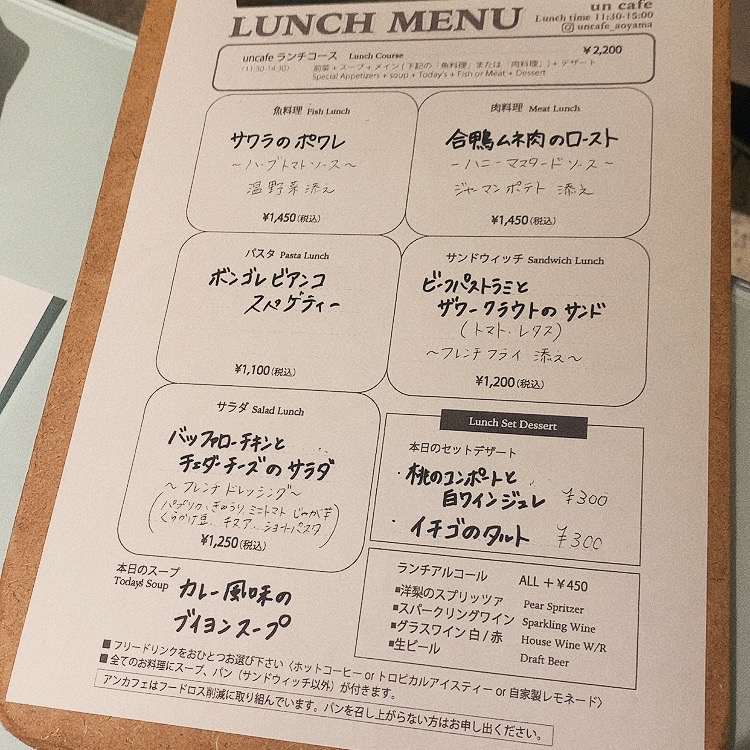 LUNCH MENU
un cafe
Lunch time 11:30-15:00
uncafe_aoyama
uncafe ランチコース Lunch Course ¥2,200
(11:30-14:30) 前菜+スープ+メイン(下記の「魚料理」または「肉料理」)+デザート
Special Appetizers + soup + Today's + Fish or Meat + Dessert
魚料理 Fish Lunch
サワラのポワレ
~ハーブトマトソース~
温野菜添え
¥1,450(税込)
肉料理 Meat Lunch
合鴨ムネ肉のロースト
-ハニーマスタードソース~
ジャーマンポテト 添え
¥1,450(税込)
パスタ Pasta Lunch
ボンゴレビアンコ
スパゲティー
¥1,100(税込)
サンドウィッチ Sandwich Lunch
ビーフパストラミと
ザワークラウトのサンド
(トマト.レタス)
~フレンチフライ 添え~
¥1,200(税込)
サラダ Salad Lunch
バッファローチキンと
チェダーチーズのサラダ
~フレンチドレッシング~
(パプリカ、きゅうり ミニトマト じゃが芋
くらかけ豆、キヌア、ショートパスタ)
¥1,250(税込)
Lunch Set Dessert
本日のセットデザート
・桃のコンポートと
白ワインジュレ ¥300
・イチゴのタルト ¥300
本日のスープ
Today's Soup
カレー風味の
ブイヨンスープ
ランチアルコール ALL +¥450
■洋梨のスプリッツァ Pear Spritzer
■スパークリングワイン Sparkling Wine
■グラスワイン 白/赤 House Wine W/R
■生ビール Draft Beer
■フリードリンクをおひとつお選び下さい〈ホットコーヒー or トロピカルアイスティー or 自家製レモネード〉
■全てのお料理にスープ、パン(サンドウィッチ以外)が付きます。
アンカフェはフードロス削減に取り組んでいます。パンを召し上がらない方はお申し出ください。